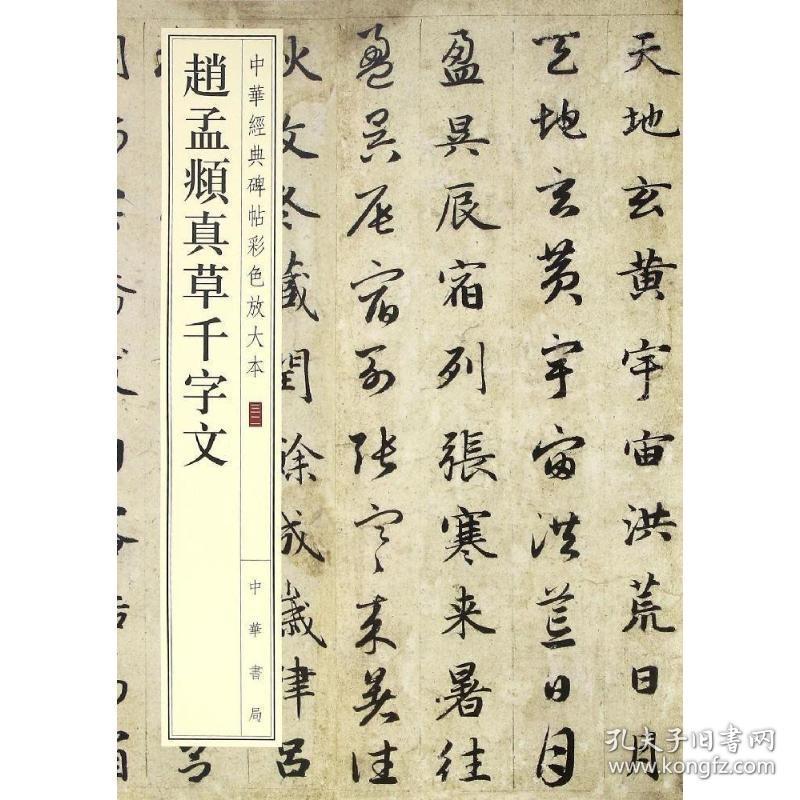 趙孟頫真草千字文
中華經典碑帖彩色放大本
三二
中華書局
天地玄黄宇宙洪荒日月
天地玄黄宇宙洪荒日月
盈昃辰宿列張寒来暑往
盈昃辰宿列張寒来暑往
秋收冬藏閏餘成歲律吕
孔夫子旧书网
www.kongfz.com